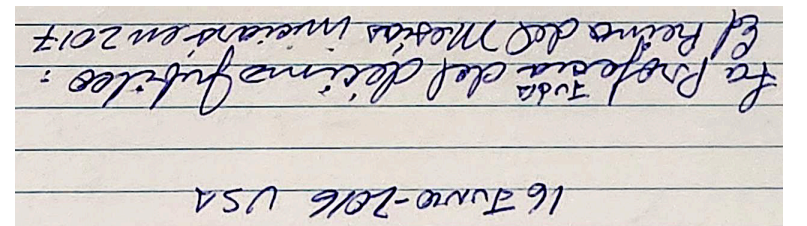 16 Junio-2016 USA
JUDA
La Profecia del décimo Jubileo:
El Reino del Mesías iniciará en 2017